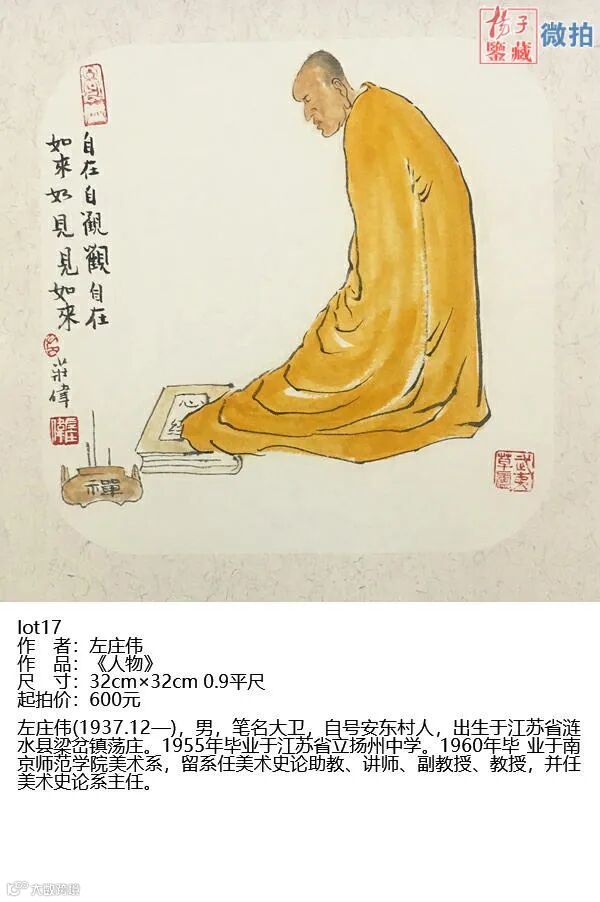 扬子
鉴藏
微拍
自在自觀觀自在
如來如見見如來
莊偉
心经
禪
武夷
草堂
lot17
作 者：左庄伟
作 品：《人物》
尺 寸：32cm×32cm 0.9平尺
起拍价：600元
左庄伟(1937.12—)，男，笔名大卫，自号安东村人，出生于江苏省涟
水县梁岔镇荡庄。1955年毕业于江苏省立扬州中学。1960年毕 业于南
京师范学院美术系，留系任美术史论助教、讲师、副教授、教授，并任
美术史论系主任。